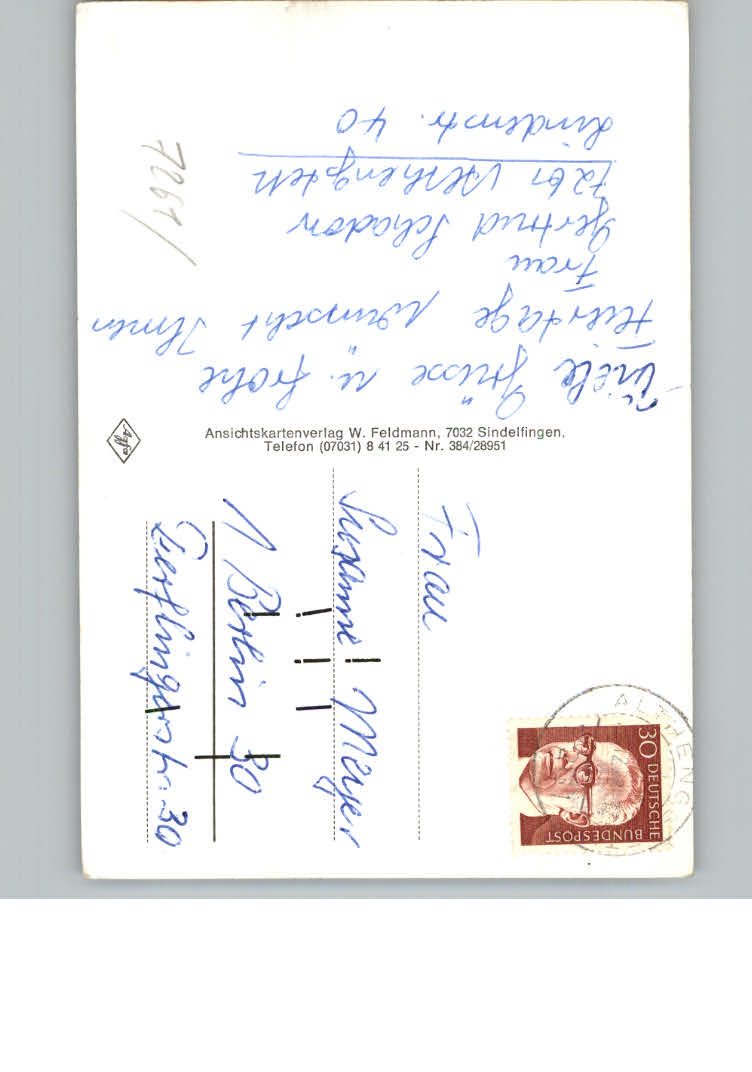 Viele Grüsse u. frohe
Feiertage wünscht Ihnen
Frau
Gertrud Schadow
7261 Althengstett
Lindenstr. 40
7261/
Agfa
Ansichtskartenverlag W. Feldmann, 7032 Sindelfingen,
Telefon (07031) 8 41 25 - Nr. 384/28951
Frau
Susanne Meyer
1 Berlin 30
Derfflingerstr. 30
30 DEUTSCHE
BUNDESPOST
ALTHENG